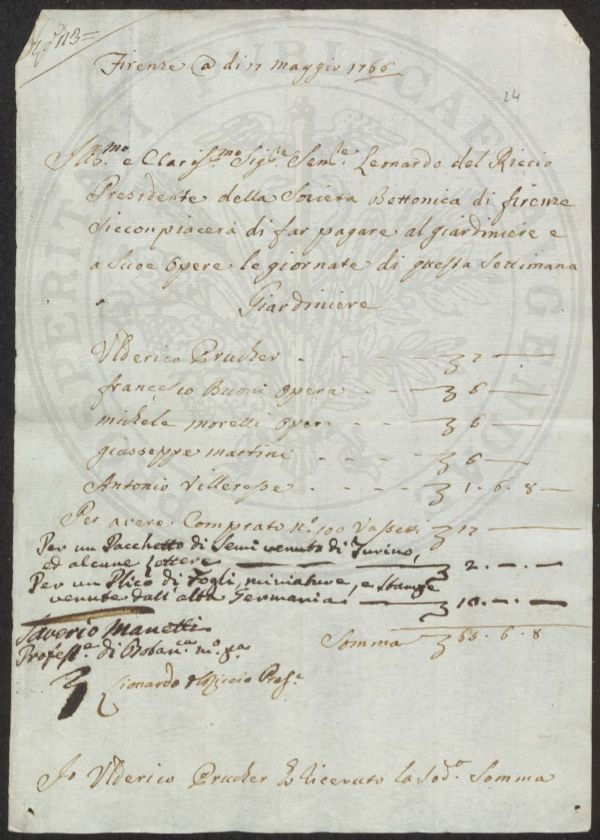 N.º 113 =
Firenze @ di 17 maggio 1766
24
Ill.mo e Clariss.mo Sig.re Sen.re Lemardo del Riccio
Presidente della Sovieta Bottonica di firenze
Siccompiacerà di far pagare al giardiniere e
a Suoe Opere le giornate di questa Settimana
Giardiniere
Ulderico Prucher - - - - 7 —
francesco Buoni Opera - - 6 —
michele morelli Opera - - 6 —
giusseppe martini - - - 6 —
Antonio Villerese - - - 1. 6. 8 —
Per avere Comprato n.º 100 Vassetti 17 —
Per un Pacchetto di Semi venuto di Turino,
ed alcune Lettere — 2. — . —
Per un Plico di Fogli, miniature, e Stampe
venute dall'alta Germania — 10. — . —
Saverio Manetti
Profess.e di Botan.ca m.º p.a
Somma 65. 6. 8
Lionardo del Riccio Pres.e
Io Ulderico Prucher ho ricevuto la Sod.a Somma